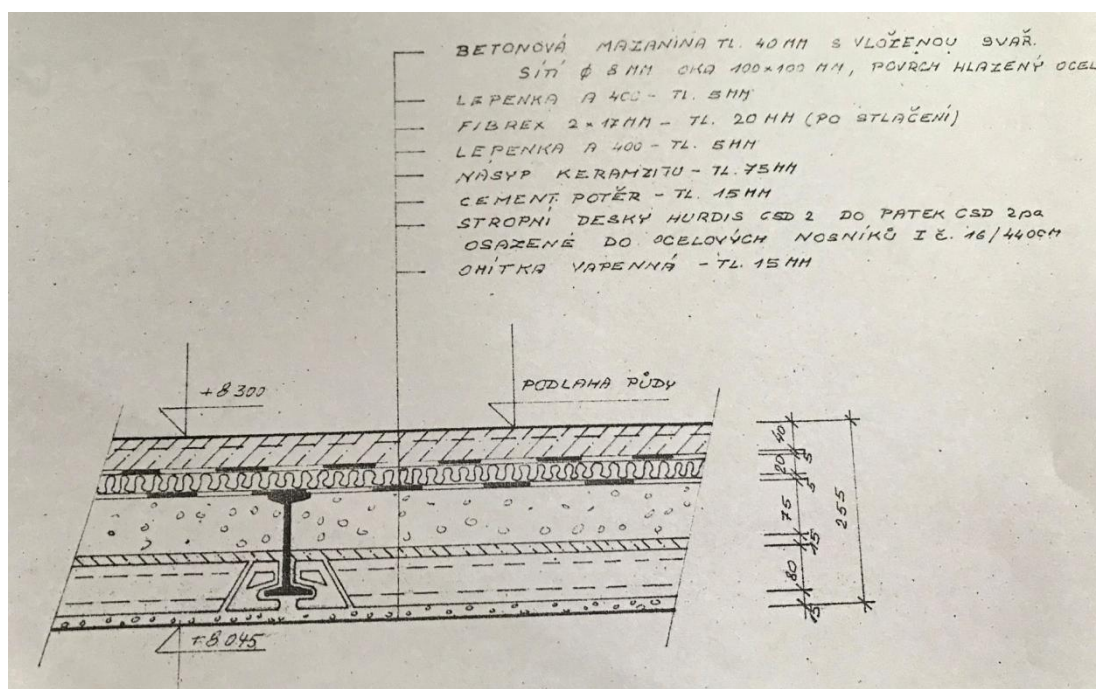 BETONOVÁ MAZANINA TL. 40 MM S VLOŽENOU SVAŘ.
SÍTÍ ϕ 8 MM OKA 100×100 MM, POVRCH HLAZENÝ OCEL
LEPENKA A 400 - TL. 5MM
FIBREX 2×17MM - TL. 20 MM (PO STLAČENÍ)
LEPENKA A 400 - TL. 5MM
NÁSYP KERAMZITU - TL. 75MM
CEMENT. POTĚR - TL. 15MM
STROPNÍ DESKY HURDIS CSD 2 DO PATEK CSD 2pa
OSAZENÉ DO OCELOVÝCH NOSNÍKŮ I č. 16/440CM
OMÍTKA VAPENNÁ - TL. 15MM
+8 300
PODLAHA PŮDY
40
5
20
5
75
15
80
15
255
+8.045